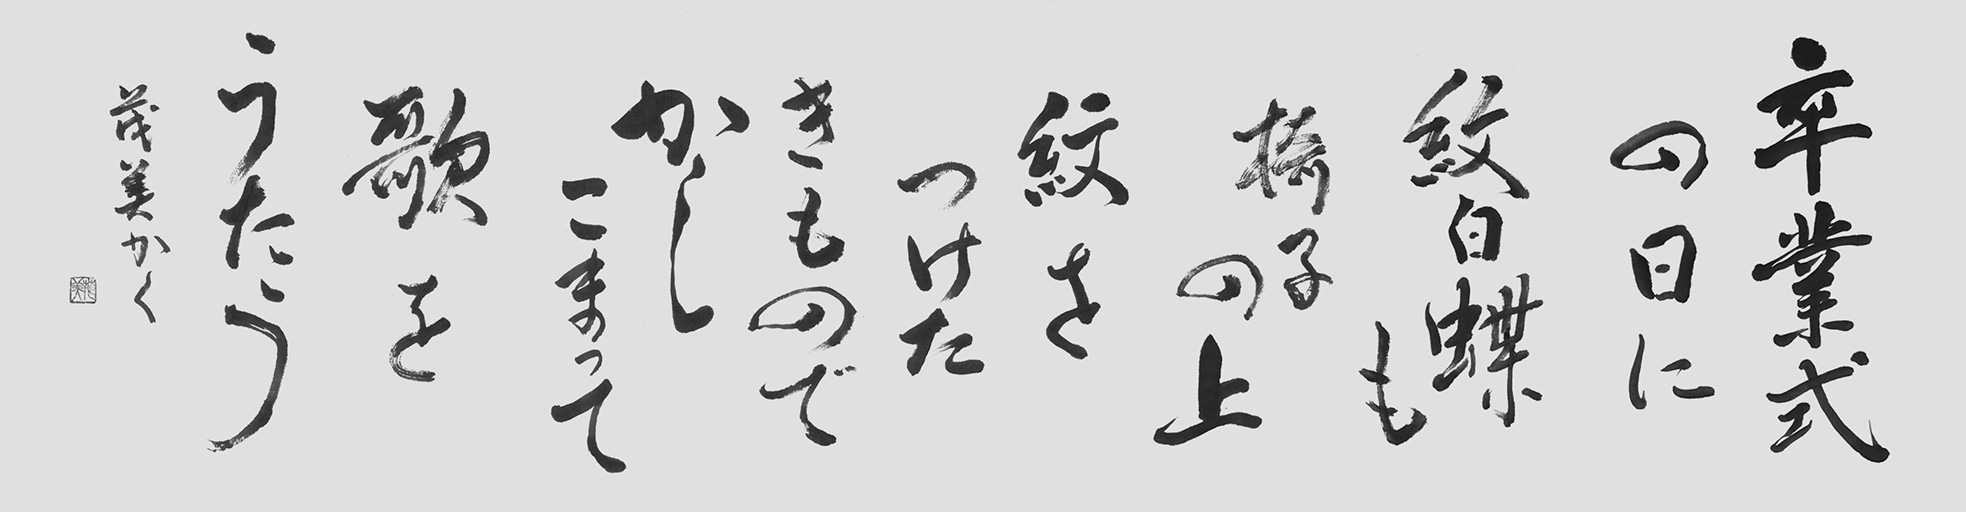 卒業式
の日に
紋白蝶も
椅子
の上
紋を
つけた
きもので
かしこまって
歌を
うたう
茂美かく